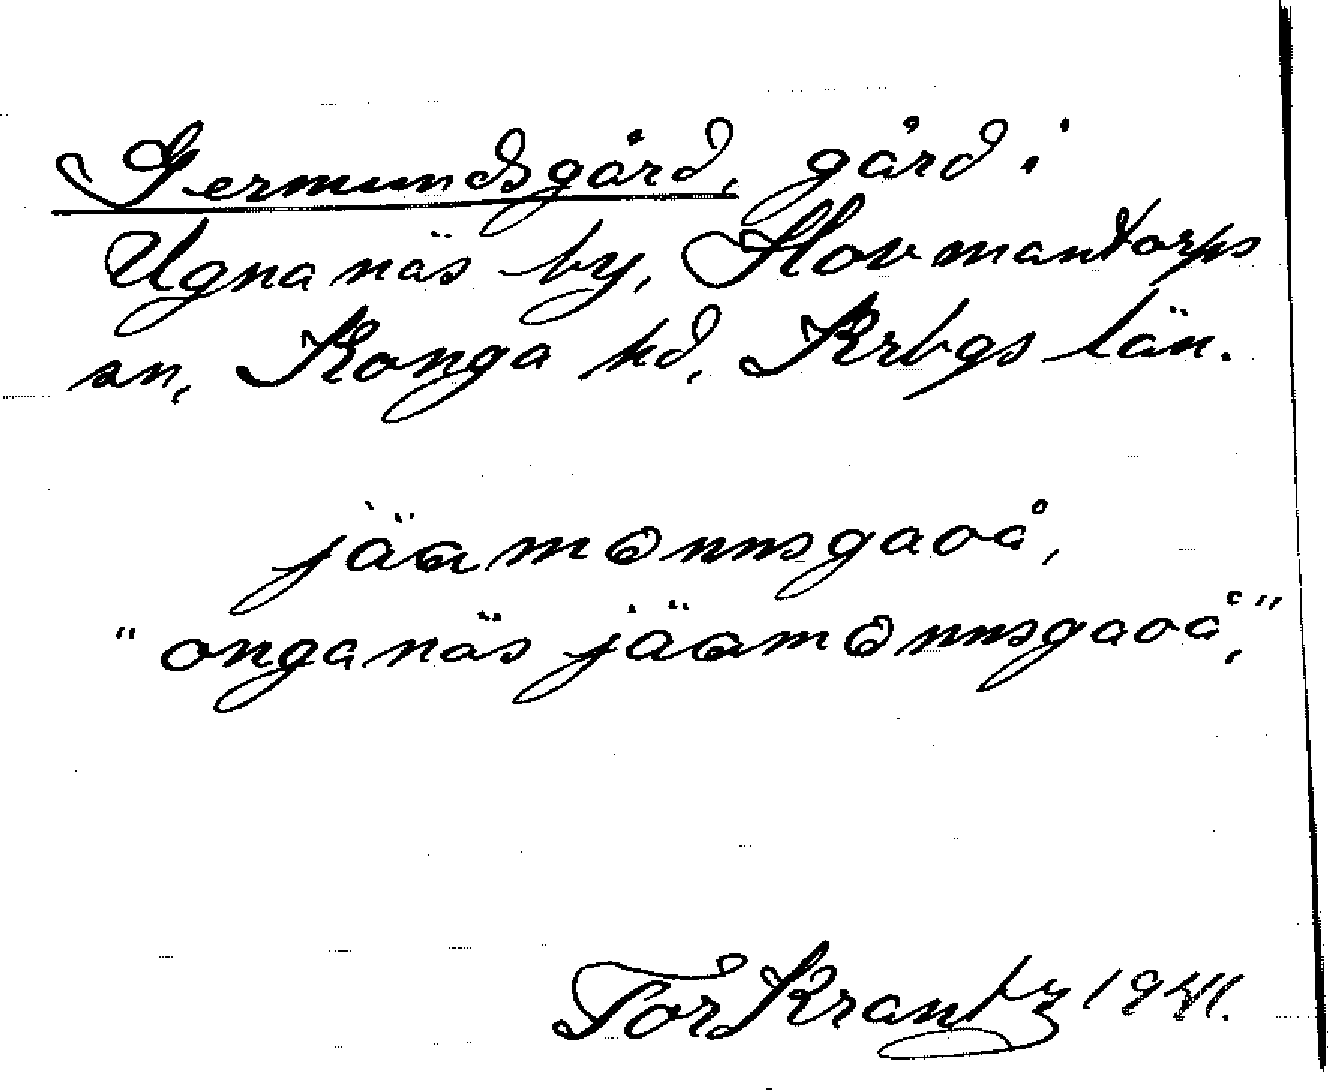 Germundsgård, gård i
Ugnanäs by, Hovmantorps
sn, Konga hd, Krbgs län.
jäamɷnnsgaoå,
"onganäs jäamɷnnsgaoå,"
Tor Krantz 1941.